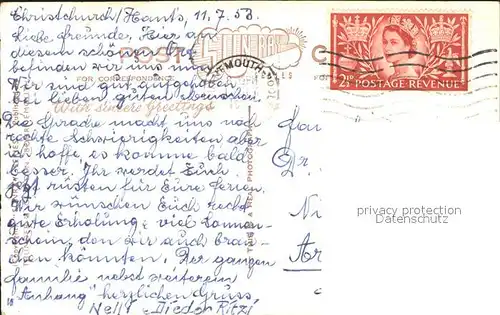 Christchurch/Hants, 11.7.53.
Liebe Freunde, Hier an
diesem schönen Ort
befinden wir uns nun.
Wir sind gut aufgehoben
bei lieben, guten Menschen.
Die Sprache macht uns noch
rechte Schwierigkeiten aber
ich hoffe es komme bald
besser. Ihr werdet Euch
jetzt rüsten für Eure Ferien.
Wir wünschen Euch recht
gute Erholung & viel Sonnen-
schein, den wir auch brau-
chen könnten. Der ganzen
Familie nebst weiterem
"Anhang" herzlichen Gruss
Nelly & Dieder Ritzi
POST
FOR CORRESPONDENCE
With Sincere Greetings
THIS IS A REAL PHOTOGRAPH
MOUTH
2½D
POSTAGE REVENUE
Fam
Dr.
Ar
privacy protection
Datenschutz